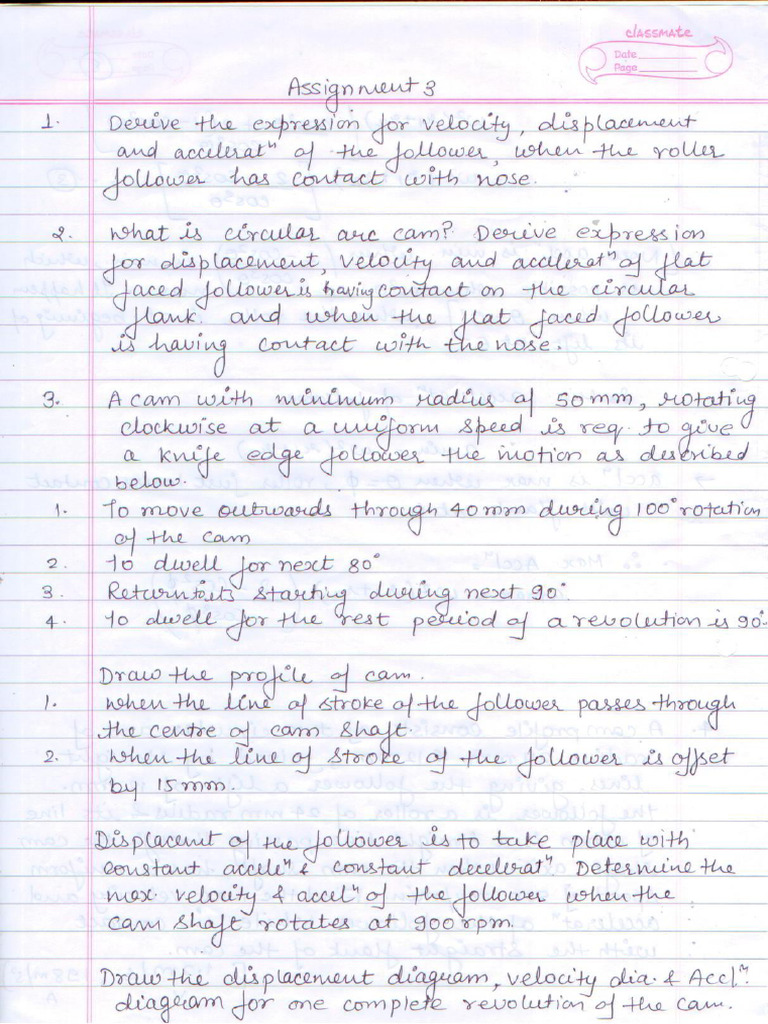 classmate
Date
Page
Assignment 3
1. Derive the expression for velocity, displacement
and acceleratⁿ of the follower, when the roller
follower has contact with nose.
2. What is circular arc cam? Derive expression
for displacement, velocity and acceleratⁿ of flat
faced follower is having contact on the circular
flank. and when the flat faced follower
is having contact with the nose.
3. A cam with minimum radius of 50mm, rotating
clockwise at a uniform speed is req. to give
a knife edge follower the motion as described
below.
1. To move outwards through 40mm during 100° rotation
of the cam
2. To dwell for next 80°
3. Return to its starting during next 90°.
4. To dwell for the rest period of a revolution is 90°.
Draw the profile of cam.
1. When the line of stroke of the follower passes through
the centre of cam shaft.
2. When the line of stroke of the follower is offset
by 15mm.
Displacemt of the follower is to take place with
constant acceleⁿ & constant decceleratⁿ Determine the
max velocity & accelⁿ of the follower when the
cam shaft rotates at 900rpm.
Draw the displacement diagram, velocity dia. & Acclⁿ.
diagram for one complete revolution of the cam.